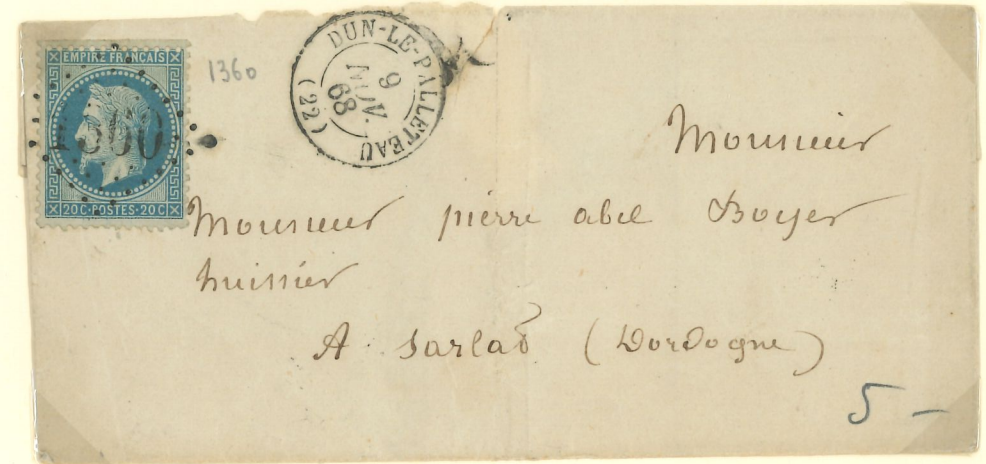 EMPIRE FRANÇAIS
1360
20C·POSTES·20C
1360
DUN-LE-PALLETEAU
9
NOV.
68
(22)
Monsieur
Monsieur pierre abel Boyer
huissier
A Sarlat (Dordogne)
5 -